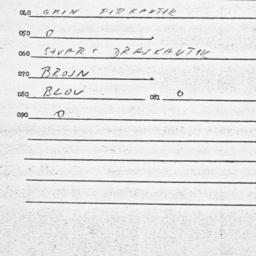 040 GRIN FIRKANTIK
050 O
060 SVART DRAIKANTIK
070 BROIN
080 BLOU 081 O
090 O